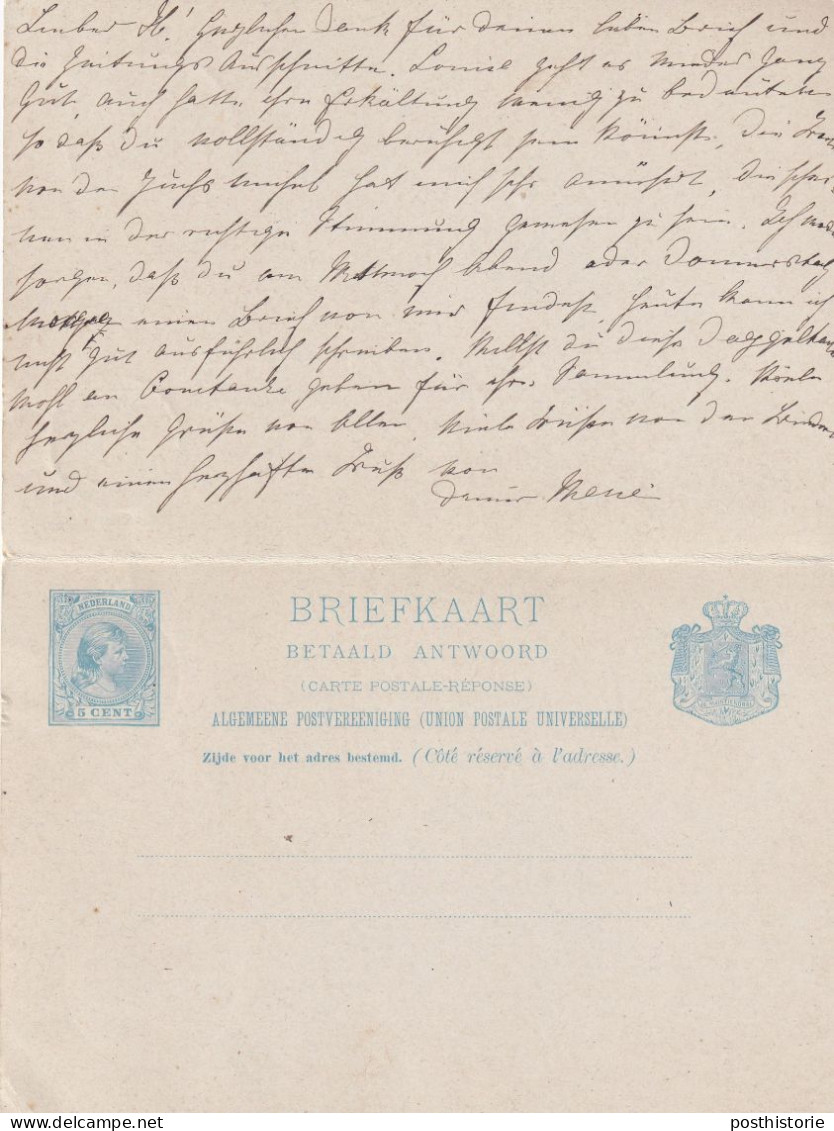 Lieber H.! Herzlichen Dank für deinen lieben Brief und
die Zeitungs Ausschnitte. Louise geht es wieder ganz
gut, auch hatte ihre Erkältung wenig zu bedeuten
so daß du vollständig beruhigt sein könntest, die
von der hat mich sehr amüsirt, die
nen in der richtige Stimmung gewesen zu sein. Ich
sorgen, daß du am Mittwoch Abend oder Donnerstag
Morgen einen Brief von mir findest, heute kann ich
nicht gut ausführlich schreiben. Willst du diese
wohl an Constanze geben für ihre Sammlung. Viele
herzliche Grüße von Allen, viele Grüße von den
und einen herzhaften Kuß von
deiner
NEDERLAND
5 CENT
BRIEFKAART
BETAALD ANTWOORD
(CARTE POSTALE-RÉPONSE)
ALGEMEENE POSTVEREENIGING (UNION POSTALE UNIVERSELLE)
Zijde voor het adres bestemd. (Côté réservé à l'adresse.)
posthistorie